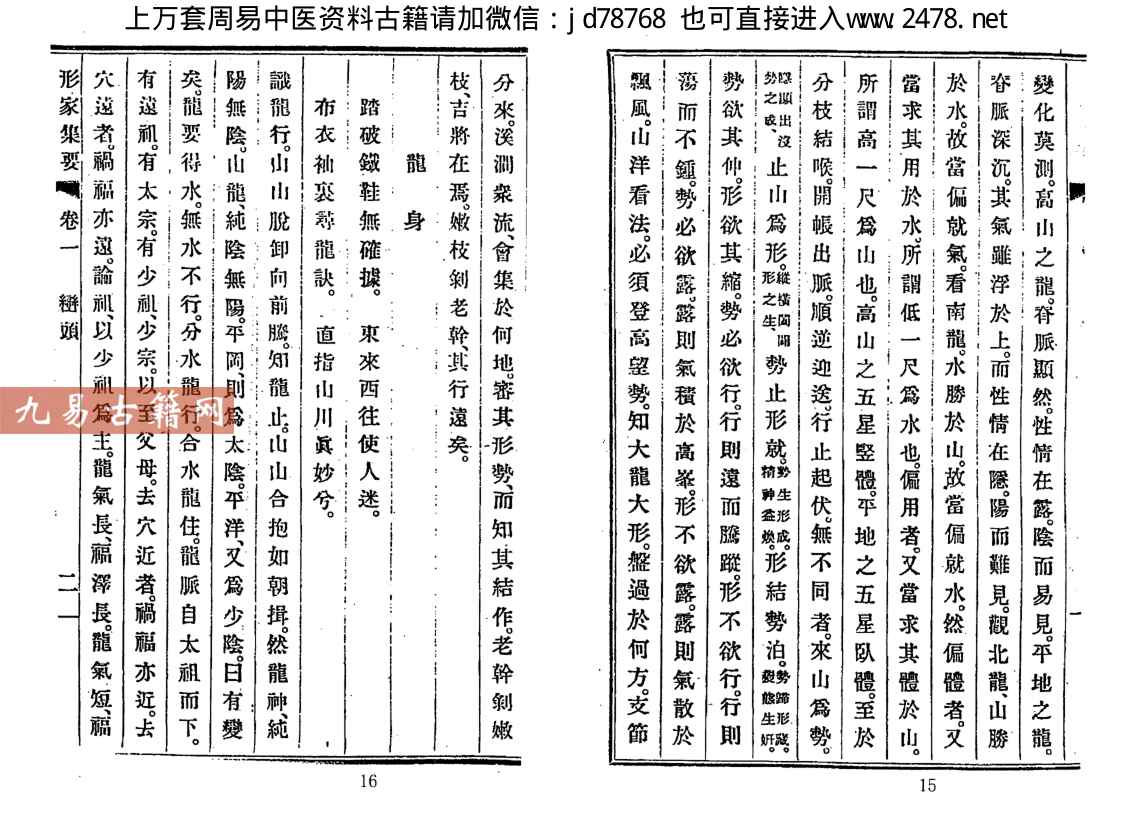 上万套周易中医资料古籍请加微信：jd78768 也可直接进入www.2478.net
變化莫測。高山之龍。脊脈顯然。性情在露。陰而易見。平地之龍。
脊脈深沉。其氣雖浮於上。而性情在隱。陽而難見。觀北龍、山勝
於水。故當偏就氣。看南龍。水勝於山。故當偏就水。然偏體者。又
當求其用於水。所謂低一尺爲水也。偏用者。又當求其體於山。
所謂高一尺爲山也。高山之五星竪體。平地之五星臥體。至於
分枝結喉。開帳出脈。順逆迎送。行止起伏。無不同者。來山爲勢。
隱顯出沒勢之成、止山爲形。縱橫闔闢形之生、勢止形就。勢生形成。精神益煥。形結勢泊。勢歸形藏。變態生妍。
勢欲其伸。形欲其縮。勢必欲行。行則遠而騰蹤。形不欲行。行則
蕩而不鍾。勢必欲露。露則氣積於高峯。形不欲露。露則氣散於
飄風。山洋看法。必須登高望勢。知大龍大形。盤過於何方。支節
15
分來。溪澗衆流、會集於何地。審其形勢、而知其結作。老幹剝嫩
枝、吉將在焉。嫩枝剝老幹、其行遠矣。
龍身
踏破鐵鞋無確據。 東來西往使人迷。
布衣袖裏尋龍訣。 直指山川眞妙兮。
識龍行。山山脫卸向前騰。知龍止。山山合抱如朝揖。然龍神、純
陽無陰。山龍、純陰無陽。平岡、則爲太陰。平洋、又爲少陰。曰有變
矣。龍要得水。無水不行。分水龍行。合水龍住。龍脈自太祖而下。
有遠祖。有太宗。有少祖、少宗。以至父母。去穴近者。禍福亦近。去
穴遠者。禍福亦遠。論祖、以少祖爲主。龍氣長、福澤長。龍氣短、福
形家集要 卷一 巒頭 二一
16
九易古籍网